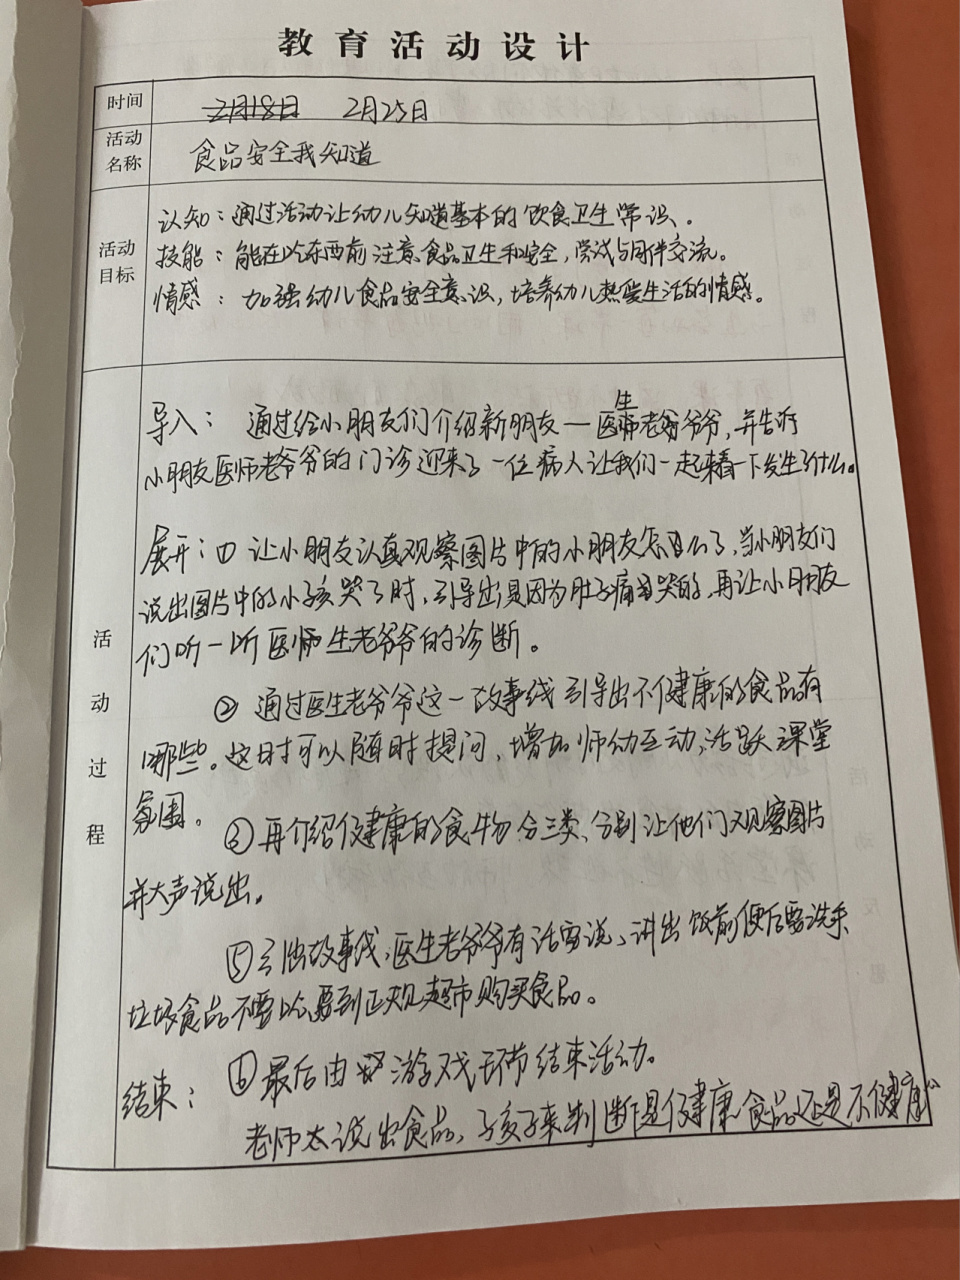 教育活动设计
时间 2月18日 2月25日
活动名称 食品安全我知道
活动目标
认知：通过活动让幼儿知道基本的饮食卫生常识、
技能：能在吃东西前注意食品卫生和安全，尝试与同伴交流。
情感：加强幼儿食品安全意识，培养幼儿热爱生活的情感。
活动过程
导入：通过给小朋友们介绍新朋友一医生老爷爷，并告诉
小朋友医师老爷爷的门诊迎来了一位病人让我们一起来看一下发生了什么。
展开：① 让小朋友认真观察图片中的小朋友怎么了，当小朋友们
说出图片中的小孩哭了时，引导出是因为肚子痛哭的，再让小朋友
们听一听医师生老爷爷的诊断。
② 通过医生老爷爷这一故事线引导出不健康的食品有
哪些。这时可以随时提问，增加师幼互动，活跃课堂
氛围。
③ 再介绍健康的食物分三类、分别让他们观察图片
并大声说出。
⑤ 引出故事线，医生老爷爷有话要说、讲出饭前便后要洗手
垃圾食品不要吃，要到正规超市购买食品。
结束：⑥ 最后由游戏环节结束活动。
老师大说出食品，孩子来判断是健康食品还是不健康